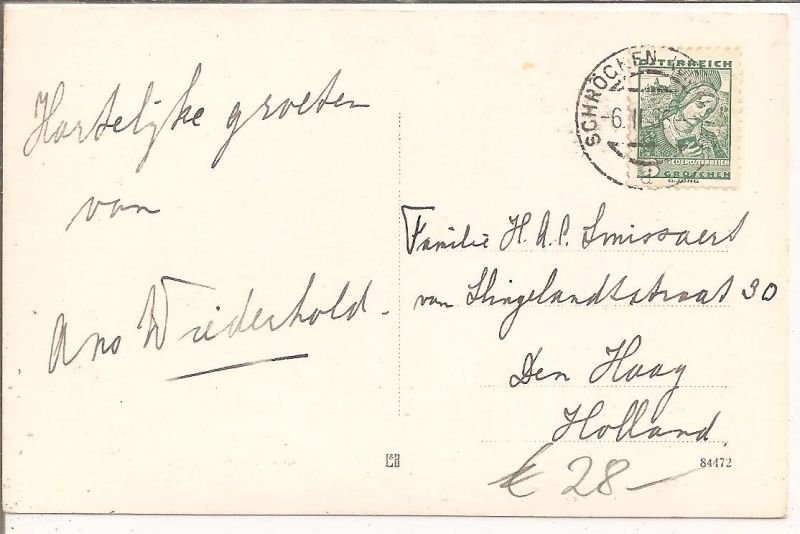 Hartelijke groeten
van
Ans Wiederhold.
SCHRÖCKEN
-6.II.
ÖSTERREICH
NIEDERÖSTERREICH
5 GROSCHEN
Familie H.A.P. Smissaert
van Slingelandtstraat 30
Den Haag
Holland.
84472
€ 28-